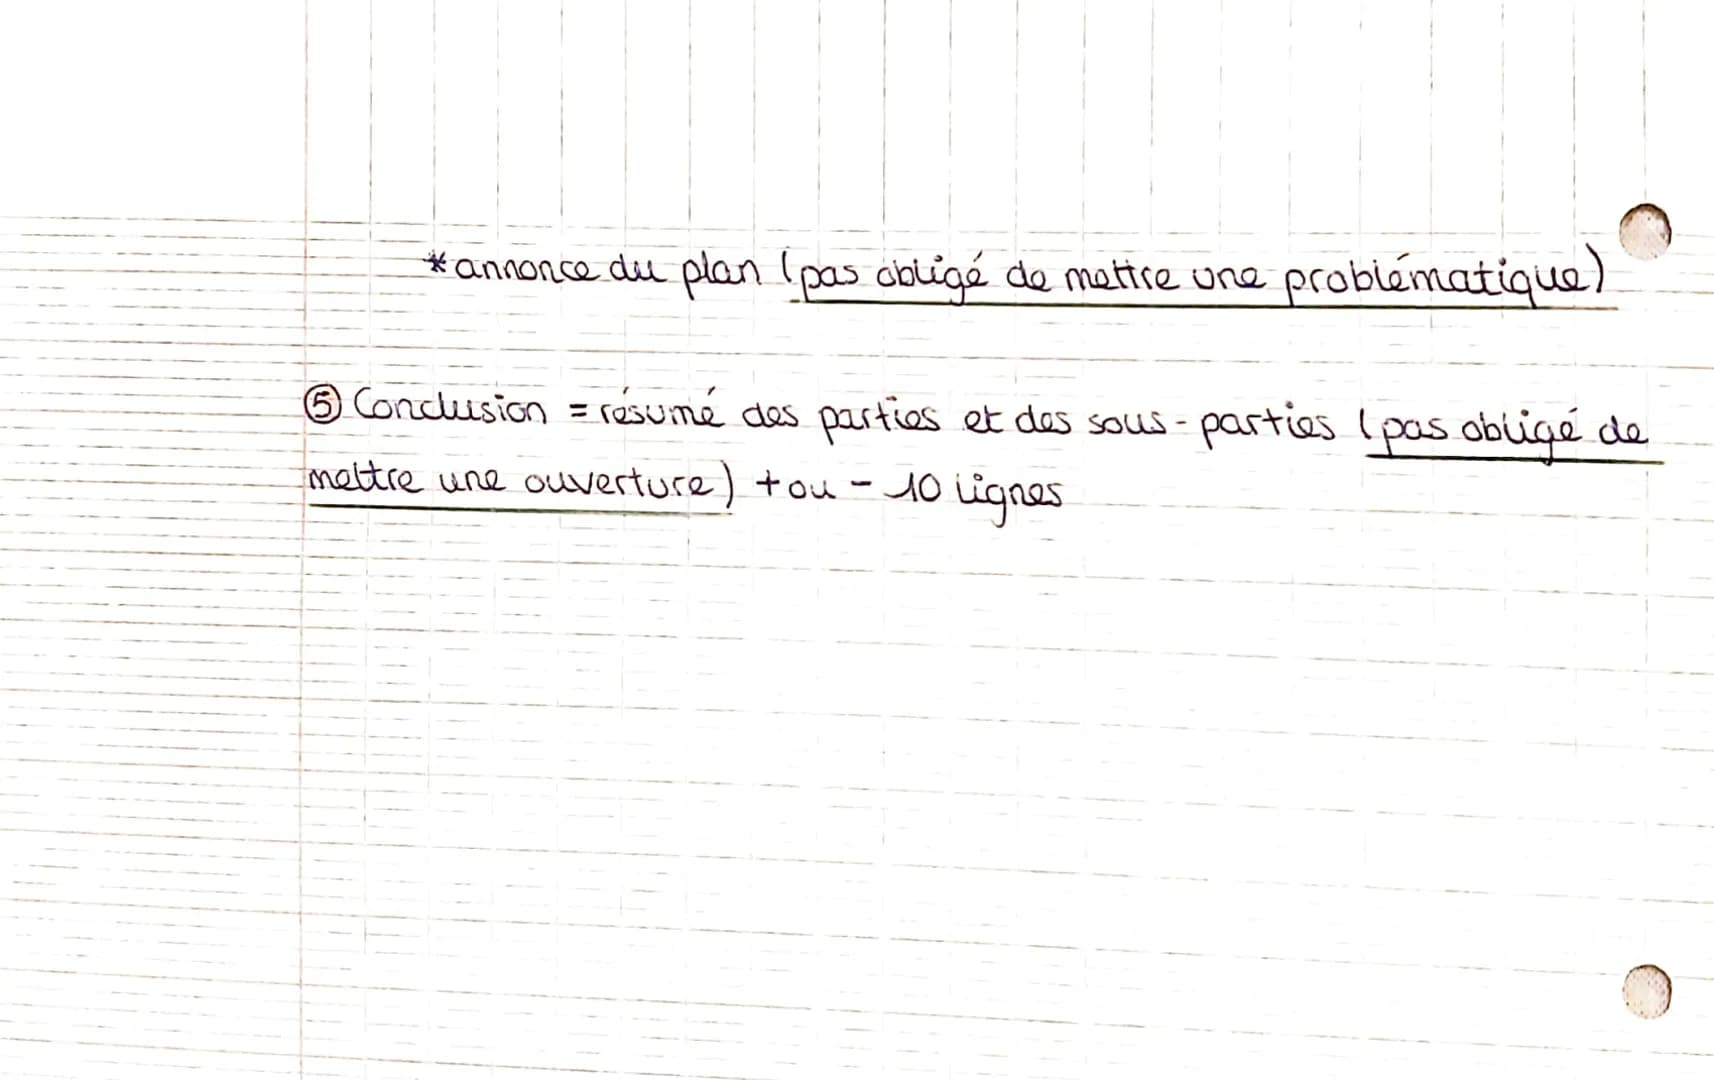 *annonce du plan (pas obligé de mettre une problématique)
⑤ Conclusion = résumé des parties et des sous-parties (pas obligé de
mettre une ouverture) + ou - 10 lignes